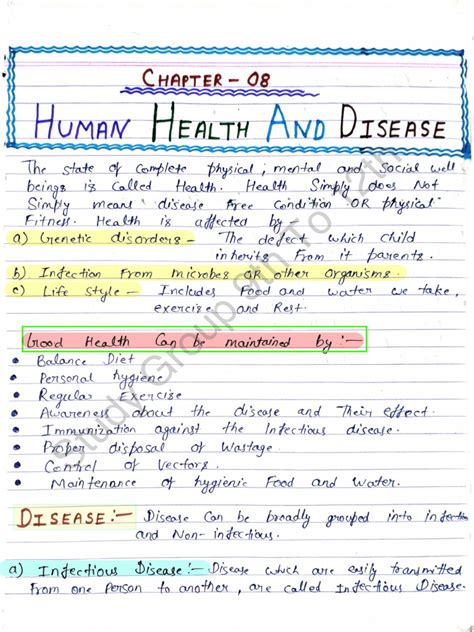 CHAPTER - 08
HUMAN HEALTH AND DISEASE
The state of complete physical, mental and social well
beings is Called Health. Health Simply does Not
Simply means disease Free Condition OR physical
Fitness. Health is affected by -
a) Genetic disorders - The defect which child
inherits From it parents.
b) Infection From microbes OR other Organisms.
c) Life Style - Includes Food and water we take,
exercise and Rest.
Good Health Can be maintained by :-
• Balance Diet
• Personal hygiene
• Regular Exercise
• Awareness about the disease and Their effect.
• Immunization against the Infectious disease.
• Proper disposal of Wastage.
• Control of Vectors.
• Maintenance of hygienic Food and Water.
DISEASE :- Disease Can be broadly grouped into infection
and Non-infectious.
a) Infectious Disease :- Disease which are easily transmitted
From one Person to another, are called Infectious Disease.
Study Group 9th To 12th